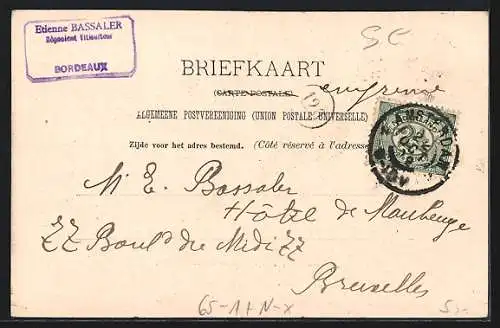 Etienne BASSALER
Négociant Viticulteur
BORDEAUX
BRIEFKAART
(CARTE POSTALE)
ALGEMEENE POSTVEREENIGING (UNION POSTALE UNIVERSELLE)
Zijde voor het adres bestemd. (Côté réservé à l'adresse
AMSTERDAM
M E. Bassaler
Hôtel de Maubeuge
ZZ Boulᵈ du Midi ZZ
Bruxelles
65-1+N-X